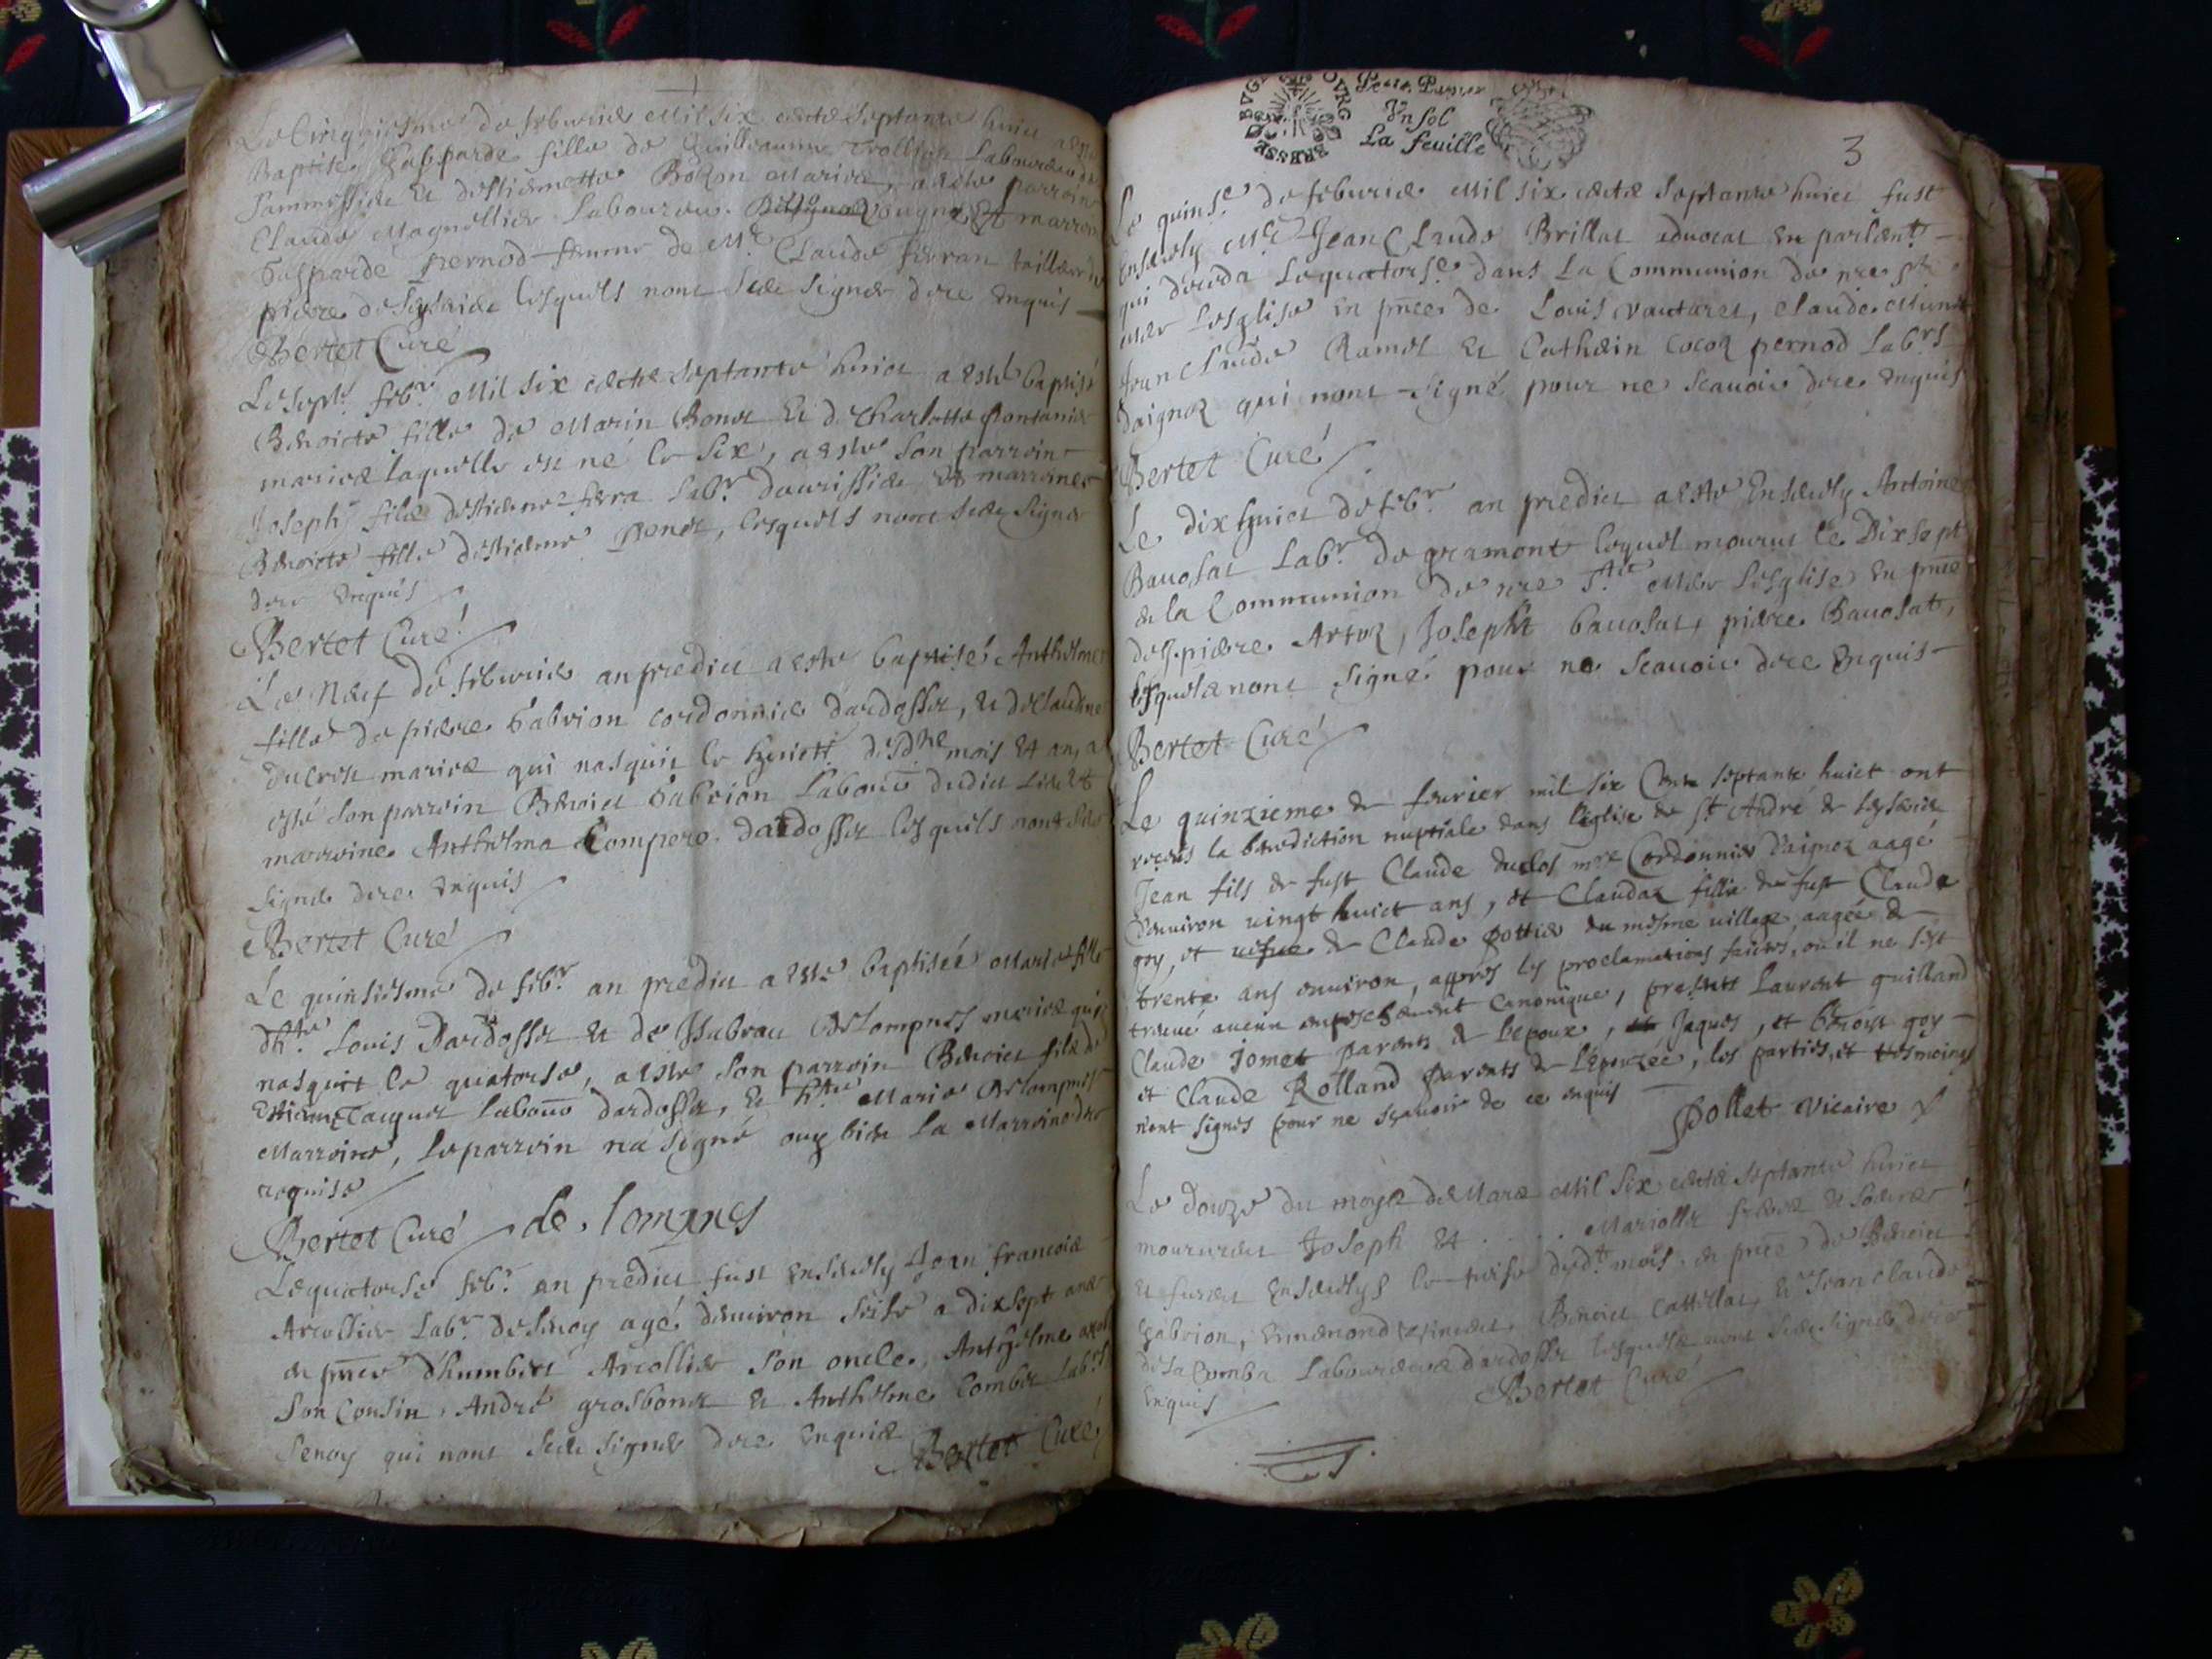 Le Cinquiesme de febvrier Mil six cents septante huict a este
Baptisé Gasparde fille de Guilleaume Trollion Laboureur de
et destiennette Bozon Mariez, a este parroin
Claude Magnellier Laboureur et marroine
Gasparde pernod femme de Me Claude ferran tailleur de
pierre de Seyserieu lesquels nont sceu signer de ce enquis
Bertet Curé
Le sept febr Mil six cents septante huict a este baptisé
Benoicte fille de Marin Bonet et de Charlotte pontanier
mariez laquelle est né le six, a este son parroin
Joseph filz destienne ferra Labr et marroine
Benoicte fille destienne Benet, lesquels nont sceu signer
de ce enquis
Bertet Curé
Le Neuf de febvrier an predict a este baptisé Anthelme
fille de pierre Gabrion cordonnier dardosset, et de Claudine
Ducrest mariez qui nasquit le huict dudt mois et an, a
esté son parroin Benoict Gabrion Labour dudict lieu et
marroine Anthelma Compere dardosset lesquels nont sceu
signer de ce enquis
Bertet Curé
Le quinsiesme de febr an predict a esté baptisée Marie fille
dhte Louis Dardosset et de Isabeau Delompnes mariez qui
nasquit le quatorse, a este son parroin Benoict filz de
Estienne Jacquet Labour dardosset, et hte Marie Delompnes
Marroine, le parroin na signé ouy bien la Marroine de ce
requise
Bertet Curé de lompnes
Le quatorse febr an predict fust ensevely Jean francois
Arcollier Labr de Senoy agé denviron seise a dixsept ans
en pnce dhumbert Arcollier son oncle, Anthelme
son Cousin, André grosbonet et Anthelme Combet Labrs
Senoy qui nont sceu signer de ce enquis Bertet Curé
BVGEY BOVRG BRESSE
Un sol
La feuille
3
Le quinse de febvrier Mil six cents septante huict fust
ensevely Mre Jean Claude Brillat advocat en parlent
qui deceda le quatorse dans la Communion de nre ste
mere lesglise en pnce de Louis vautaret, Claude
Jean Claude Ramel et Cathein cocoz pernod Labrs
daignoz qui nont signé pour ne scavoir de ce enquis
Bertet Curé
Le dix huict de febr an predict a este ensevely Antoine
Bavosat Labr de gramont lequel mourut le Dixsept
en la Communion de nre Ste Mere lesglise en pnce
de pierre Artoz, Joseph bavosat, pierre Bavosat,
lesquels nont signé pour ne scavoir de ce enquis
Bertet Curé
Le quinzieme de fevrier mil six Cents septante huict ont
receus la benediction nuptiale dans l'eglise de st André de seyserieu
Jean fils de fust Claude duclos mre Cordonnier d'aignoz aagé
d'environ vingt huict ans, et Claudaz fillie de fust Claude
goy, et vefve de Claude pottier du mesme village, aagée de
trente ans environ, appres les proclamations faictes, ou il ne s'est
treuvé aucun empeschement canonique, presents Laurent guilland
Claude Jomet parents de l'epoux, Jaques, et benoist goy
et Claude Rolland parents de l'epouzée, les parties, et tesmoings
n'ont signés pour ne sçavoir de ce enquis
Pollet vicaire
Le douze du moys de Mars Mil six cents septante huict
moururent Joseph et . . . . Mariollet frere et soeur
et furent ensevelys le treise dudt mois en pnce de Benoict
Gabrion, Benoict Cattillat, et Jean Claude
de la Comba Laboureurs dardosset lesquels nont sceu signer de ce
enquis Bertet Curé